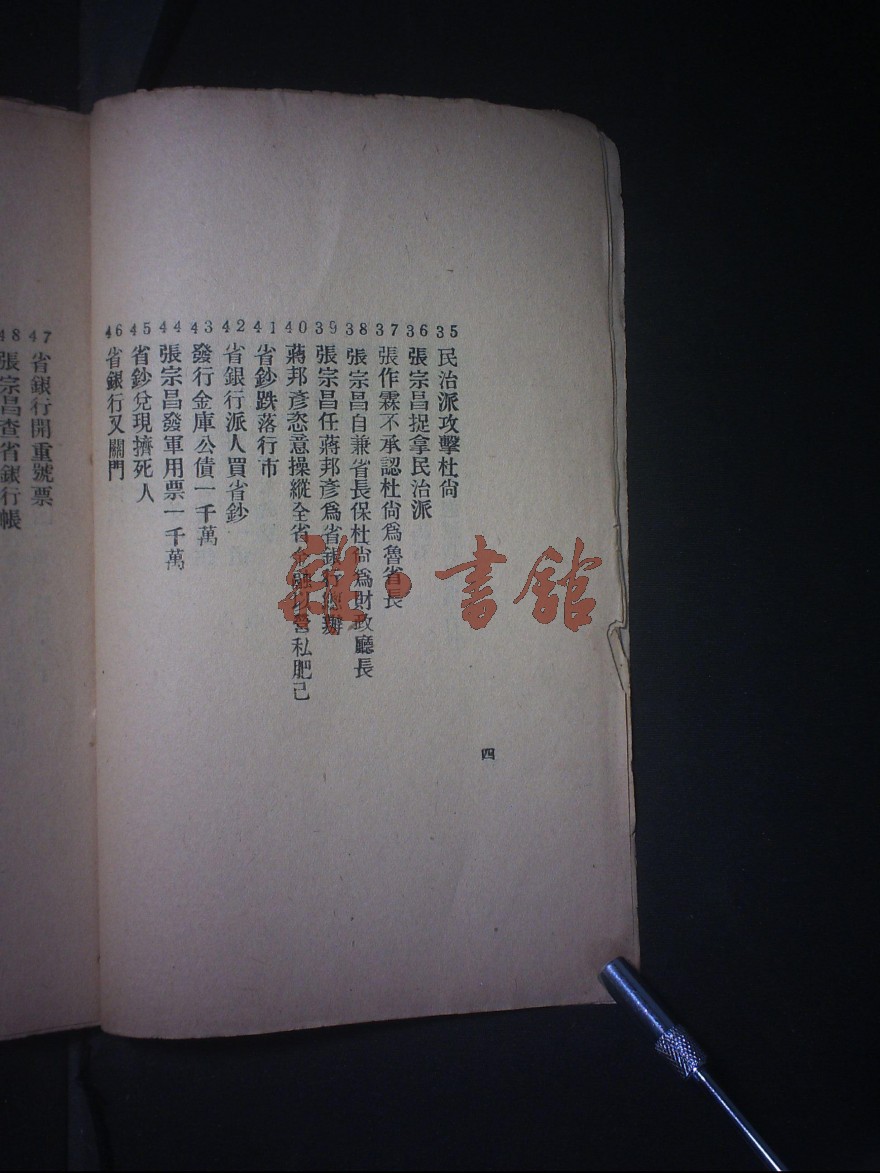 35 民治派攻擊杜尙
36 張宗昌捉拿民治派
37 張作霖不承認杜尙爲魯省長
38 張宗昌自兼省長保杜尙爲財政廳長
39 張宗昌任蔣邦彥爲省銀行總辦
40 蔣邦彥恣意操縱全省金融以營私肥己
41 省鈔跌落行市
42 省銀行派人買省鈔
43 發行金庫公債一千萬
44 張宗昌發軍用票一千萬
45 省鈔兌現擠死人
46 省銀行又關門
四
47 省銀行開重號票
48 張宗昌查省銀行帳
書館